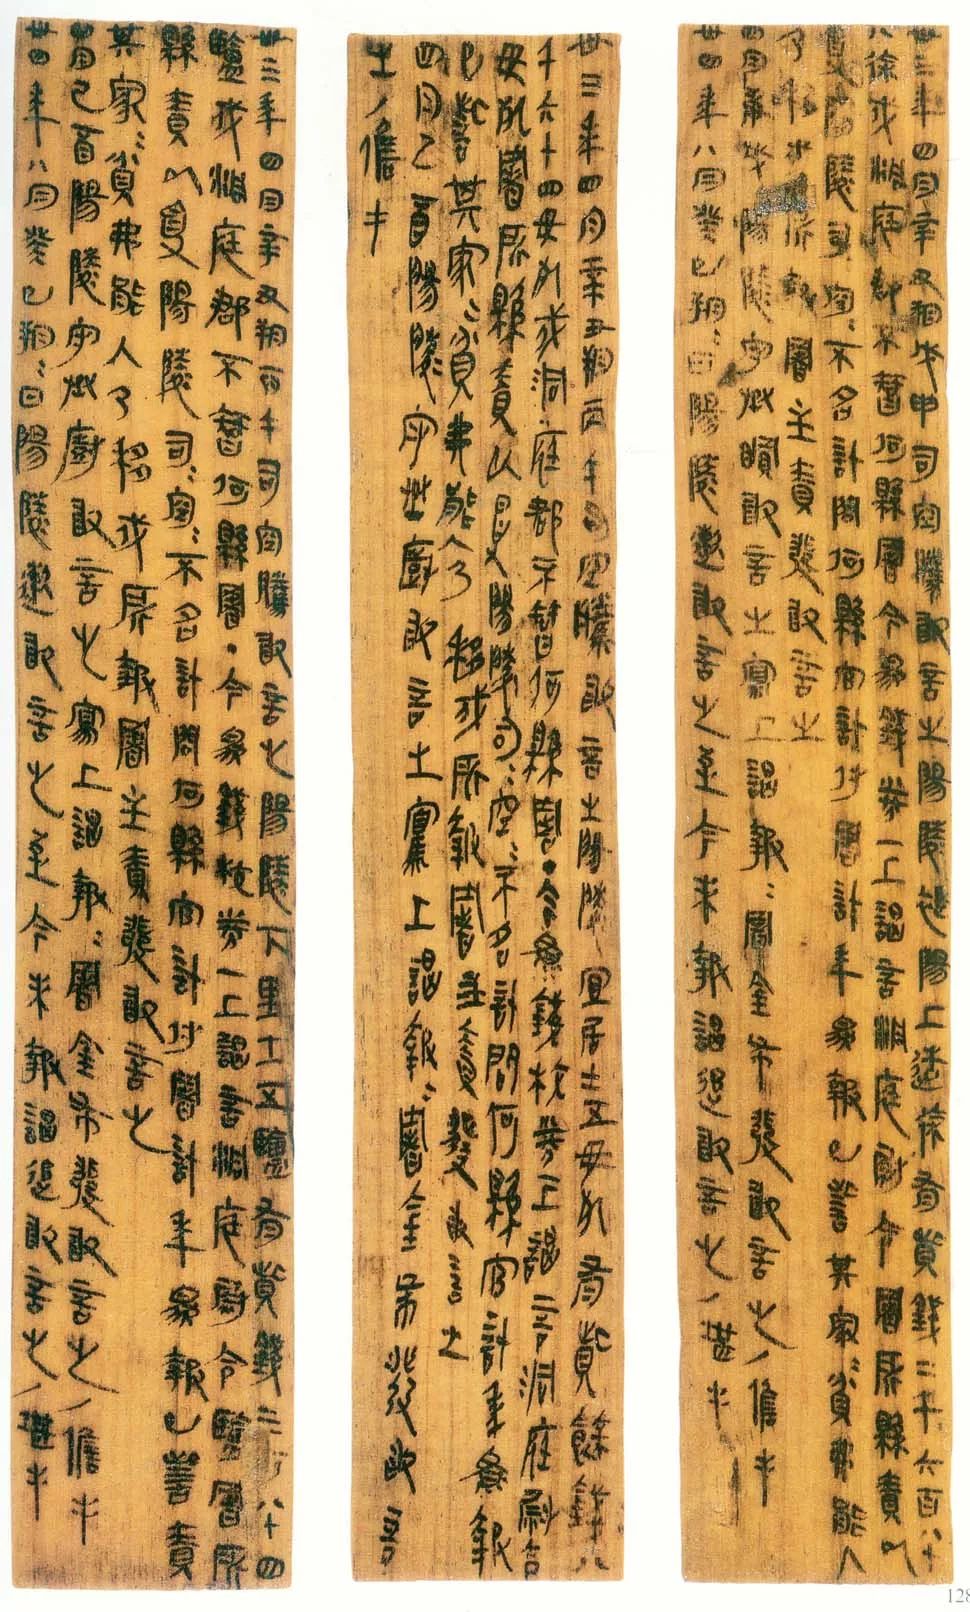 卅三年四月辛丑朔戊申司空騰敢言之陽陵逆陽上造徐有貲錢二千六百八十
八徐戍洞庭郡不智何縣署今為錢券一上謁言洞庭尉令署所縣責以
受陽陵司空=不名計問何縣官計付署計年為報已訾其家=貧弗能入
乃移戍所報署主責發敢言之
四月庚戌陽陵守丞瞫敢言之寫上謁報=署金布發敢言之/儋手
卅四年八月癸巳朔=日陽陵遫敢言之至今未報謁追敢言之/堪手
卅三年四月辛丑朔丙午司空騰敢言之陽陵宜居士五毋死有貲餘錢八
千六十四毋死戍洞庭郡不智何縣署·今為錢校券一上謁言洞庭尉令
毋死署所縣責以受陽陵司=空=不名計問何縣官計年為報
已訾其家=貧弗能入乃移戍所報署主責發敢言之
四月己酉陽陵守丞廚敢言之寫上謁報=署金布發敢言
之/儋手
卅三年四月辛丑朔丙午司空騰敢言之陽陵下里士五鹽有貲錢三百八十四
鹽戍洞庭郡不智何縣署·今為錢校券一上謁言洞庭尉令鹽署所
縣責以受陽陵司=空=不名計問何縣官計付署計年為報已訾責
其家=貧弗能入乃移戍所報署主責發敢言之
四月己酉陽陵守丞廚敢言之寫上謁報=署金布發敢言之/儋手
卅四年八月癸巳朔=日陽陵遫敢言之至今未報謁追敢言之/堪手
128